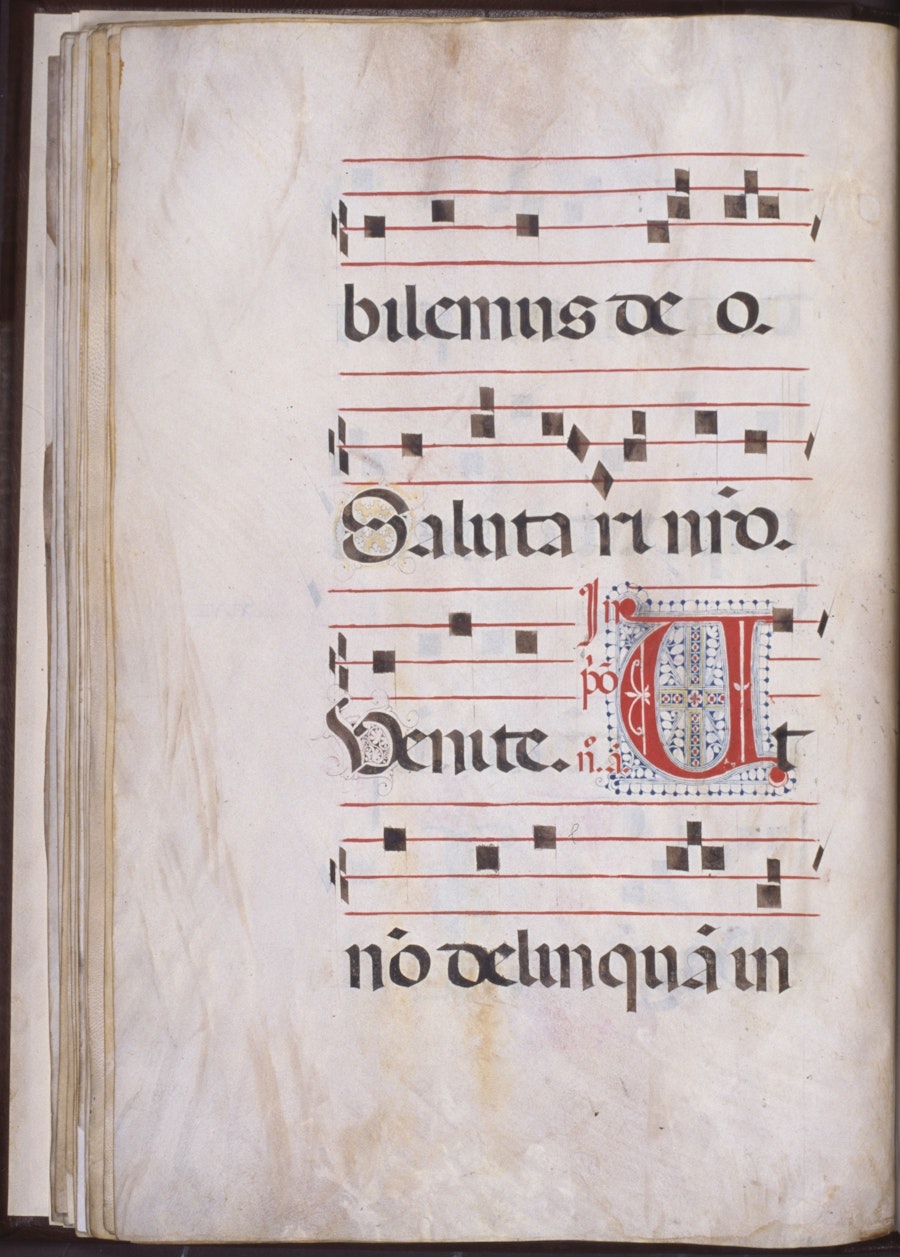 bilemus deo.
Saluta ri nr̃o.
Venite. In p̃o n̊. a̍. Ut
nõ delinquã in